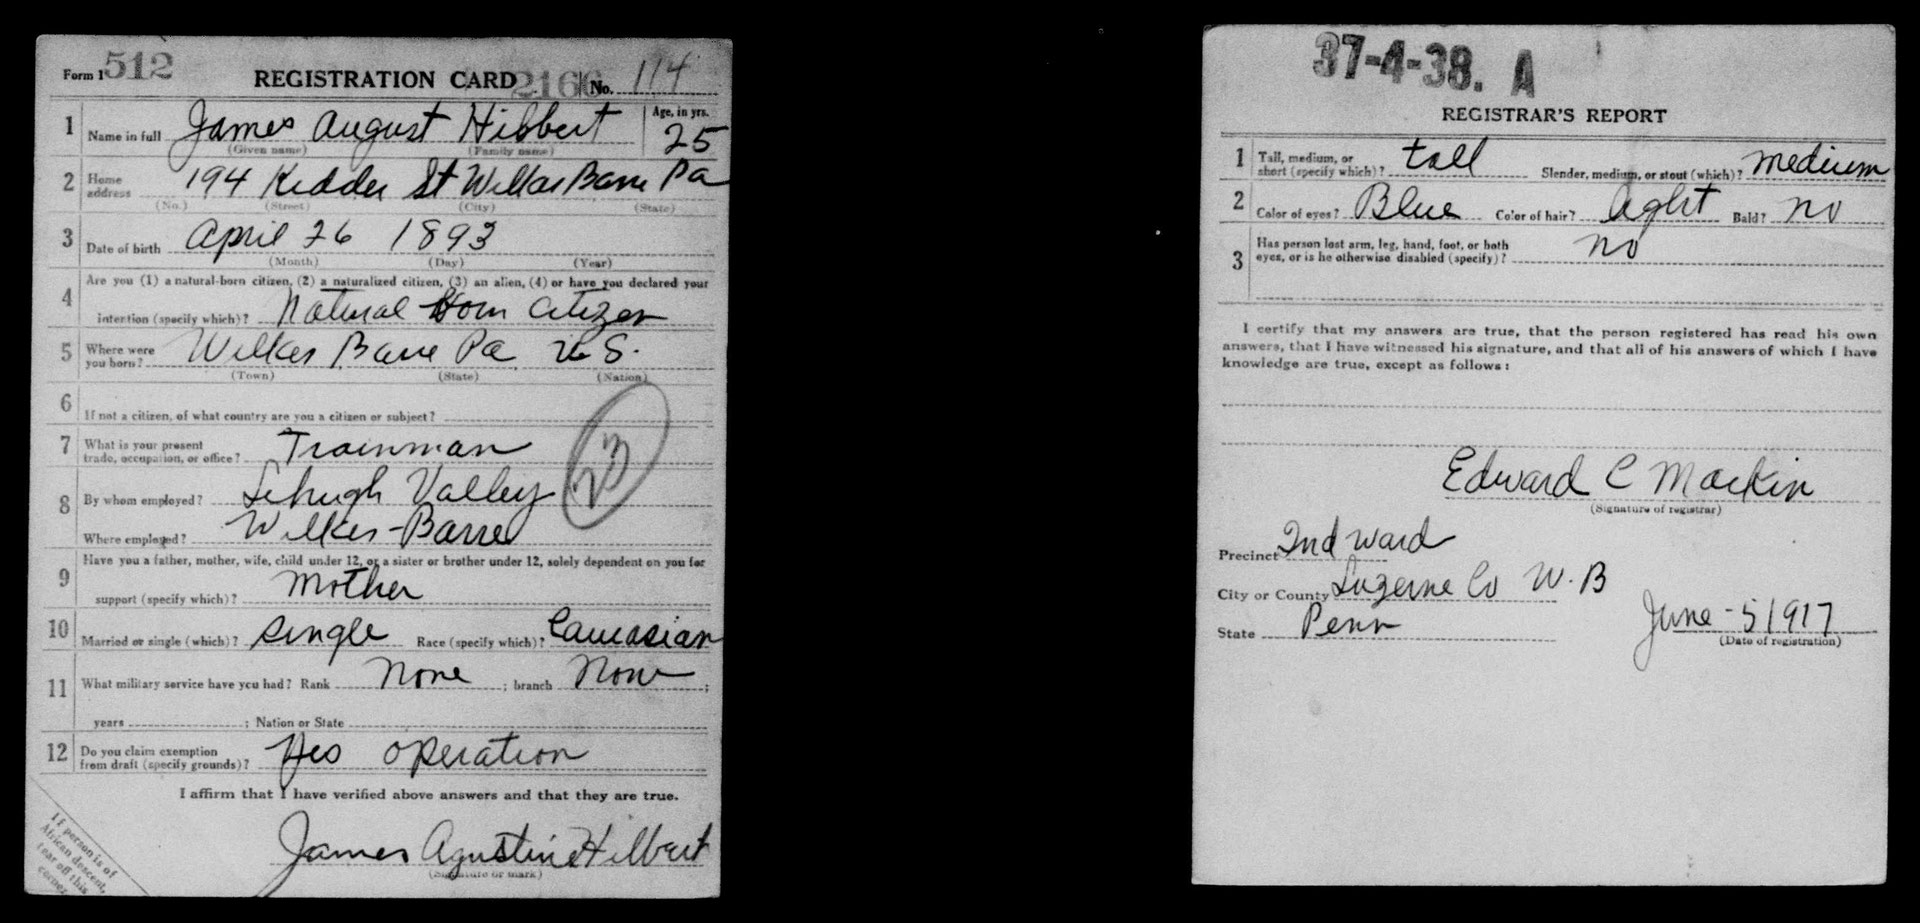 Form 1 512 REGISTRATION CARD 2166 No. 114
1 Name in full James August Hibbert Age, in yrs. 25
(Given name) (Family name)
2 Home address 194 Kidder St Wilkes Barre Pa
(No.) (Street) (City) (State)
3 Date of birth April 26 1893
(Month) (Day) (Year)
4 Are you (1) a natural-born citizen, (2) a naturalized citizen, (3) an alien, (4) or have you declared your
intention (specify which)? Natural Born Citizen
5 Where were you born? Wilkes Barre Pa U S.
(Town) (State) (Nation)
6 If not a citizen, of what country are you a citizen or subject?
7 What is your present trade, occupation, or office? Trainman
23
8 By whom employed? Lehugh Valley
Where employed? Wilkes-Barre
9 Have you a father, mother, wife, child under 12, or a sister or brother under 12, solely dependent on you for
support (specify which)? Mother
10 Married or single (which)? Single Race (specify which)? Caucasian
11 What military service have you had? Rank None ; branch None ;
years ; Nation or State
12 Do you claim exemption from draft (specify grounds)? Yes operation
I affirm that I have verified above answers and that they are true.
James Agustine Hilbert
(Signature or mark)
If person is of
African descent,
tear off this
corner
37-4-38. A
REGISTRAR'S REPORT
1 Tall, medium, or short (specify which)? tall Slender, medium, or stout (which)? medium
2 Color of eyes? Blue Color of hair? light Bald? no
3 Has person lost arm, leg, hand, foot, or both
eyes, or is he otherwise disabled (specify)? no
I certify that my answers are true, that the person registered has read his own
answers, that I have witnessed his signature, and that all of his answers of which I have
knowledge are true, except as follows:
Edward C Mackin
(Signature of registrar)
Precinct 2nd Ward
City or County Luzerne Co W. B
State Penn June - 5 1917
(Date of registration)